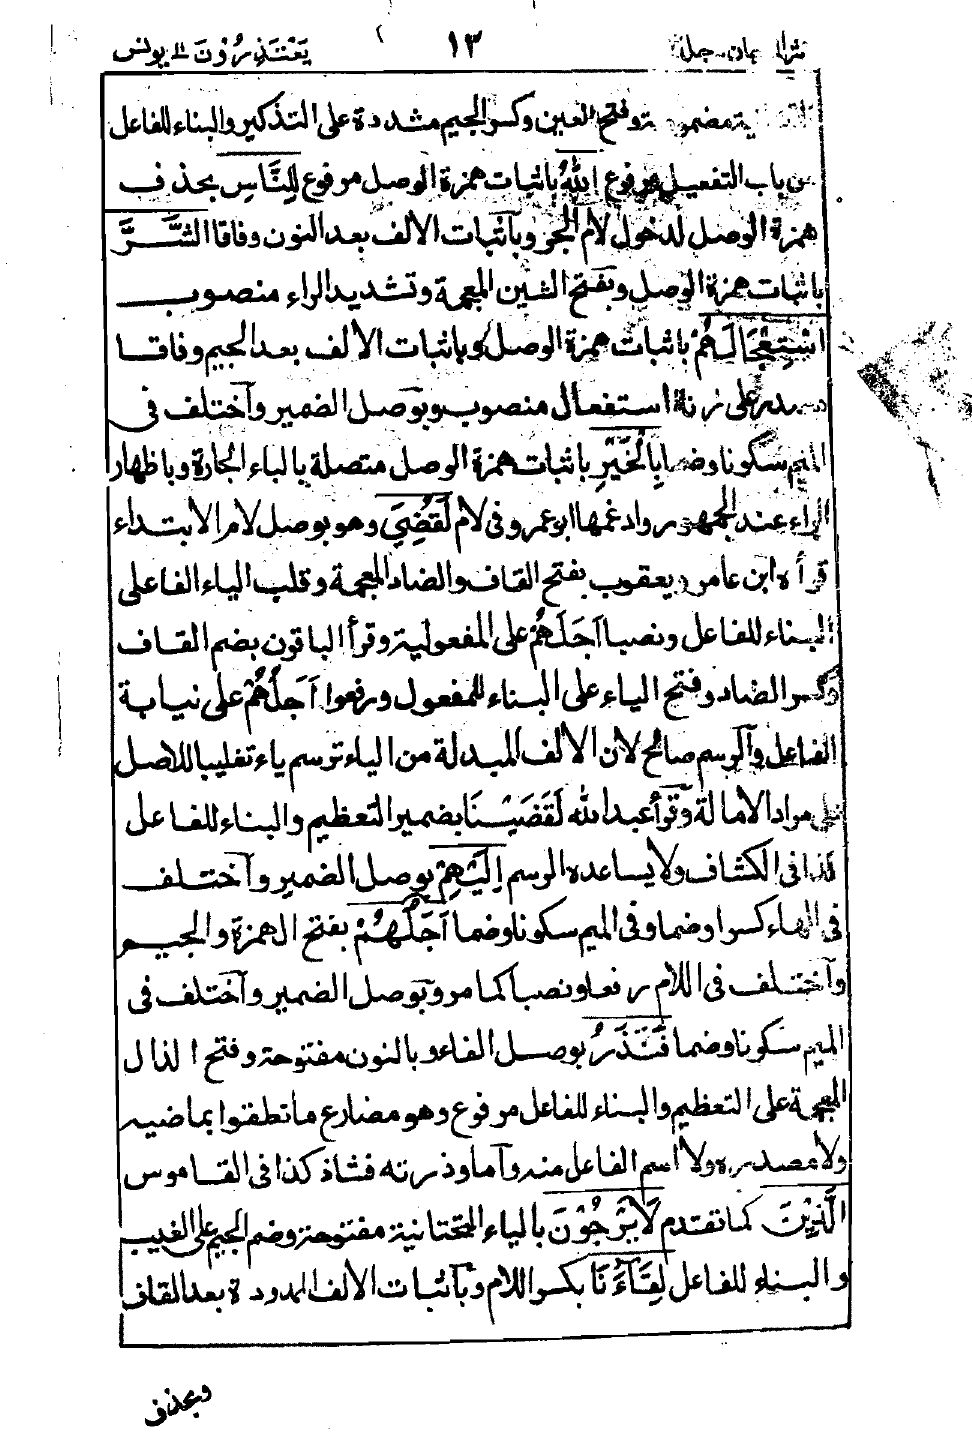 نثر المرجان - جلد ٣ ١٣ يَعْتَذِرُوْنَ ١١ يونس
التحتانية مضمومة وفتح العين وكسر الجيم مشددة على التذكير والبناء للفاعل
من باب التفعيل مرفوع اللّٰهُ باثبات همزة الوصل مرفوع لِلنَّاسِ بحذف
همزة الوصل لدخول لام الجر وباثبات الالف بعد النون وفاقا الشَّرَّ
باثبات همزة الوصل وبفتح الشين المعجمة وتشديد الراء منصوب
اسْتِعْجَالَهُمْ باثبات همزة الوصل وباثبات الالف بعد الجيم وفاقا
مصدر على زنة استفعال منصوب وبوصل الضمير واختلف فى
الميم سكونا وضما بِالْخَيْرِ باثبات همزة الوصل متصلة بالباء الجارة وباظهار
الراء عند الجمهور وادغمها ابو عمرو فى لام لَقُضِيَ وهو بوصل لام الابتداء
قرأه ابن عامر ويعقوب بفتح القاف والضاد المعجمة وقلب الياء الفا على
البناء للفاعل ونصبا اَجَلَهُمْ على المفعولية وقرأ الباقون بضم القاف
وكسر الضاد وفتح الياء على البناء للمفعول ورفعوا اَجَلُهُمْ على نيابة
الفاعل والرسم صالح لان الالف المبدلة من الياء ترسم ياء تغليبا للاصل
على مراد الامالة وقرأ عبد الله لَقَضَيْنَا بضمير التعظيم والبناء للفاعل
كذا فى الكشاف ولا يساعده الرسم اِلَيْهِمْ بوصل الضمير واختلف
فى الهاء كسرا وضما وفى الميم سكونا وضما اَجَلُهُمْ بفتح الهمزة والجيم
واختلف فى اللام رفعا ونصبا كما مر وبوصل الضمير واختلف فى
الميم سكونا وضما فَنَذَرُ بوصل الفاء وبالنون مفتوحة وفتح الذال
المعجمة على التعظيم والبناء للفاعل مرفوع وهو مضارع ما نطقوا بماضيه
ولا مصدره ولا اسم الفاعل منه واما وذرته فشاذ كذا فى القاموس
الَّذِيْنَ كما تقدم لَا يَرْجُوْنَ بالياء التحتانية مفتوحة وضم الجيم على الغيب
والبناء للفاعل لِقَآءَنَا بكسر اللام وباثبات الالف الممدودة بعد القاف
وبحذف